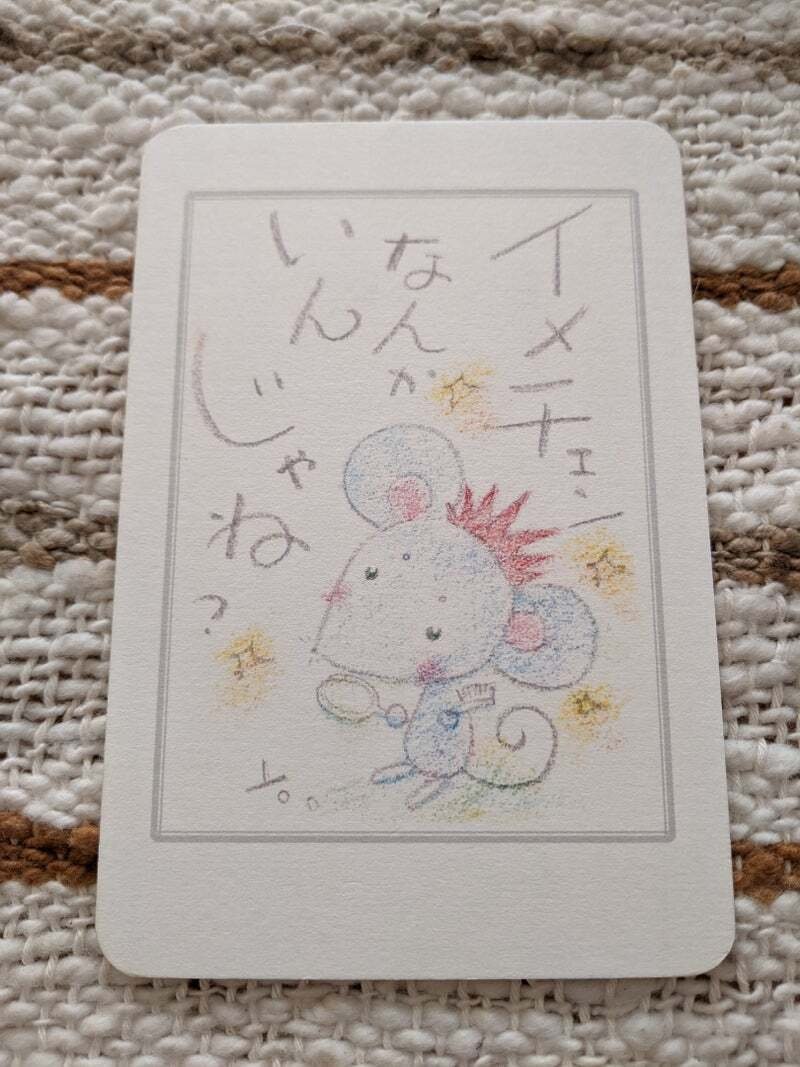 イメチェン
なんか
いんじゃね？